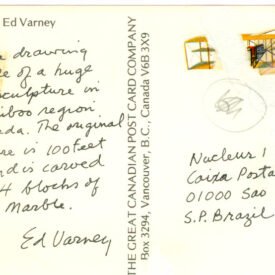 Ed Varney
drawing
of a huge
sculpture in
iboo region
da. The original
re is 100 feet
nd is carved
4 blocks of
Marble.
Ed Varney
THE GREAT CANADIAN POST CARD COMPANY
Box 3294, Vancouver, B.C., Canada V6B 3X9
Nucleur 1
Caixa Posta
01000 Sao
S.P. Brazil